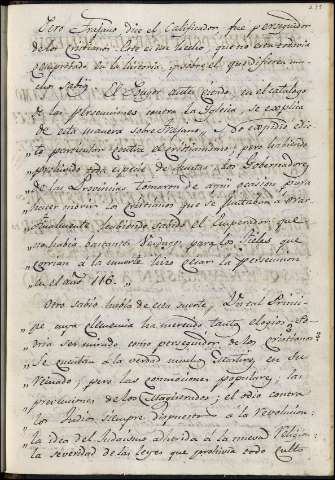 Pero Trajano dice el Calificador, fué perseguidor
de los Cristianos. Este es un hecho, que no está todavia
comprobado en la historia, y sobre el qual difieren mu-
chos sabios. El Señor en el catalogo
de las persecuciones contra la Iglesia, se explica
de esta manera sobre Trajano, „ No expidió edic-
„ to particular contra el cristianismo; pero habiendo
„ prohibido toda especie de Juntas, los Gobernadores
„ de las Provincias tomaron de aqui ocasion para
„ hacer morir los Cristianos que se juntaban á orar.
„ Finalmente habiendo sabido el Emperador que
„ no habia bastantes Verdugos para los Fieles que
„ corrian á la muerte hizo cesar la persecucion
„ en el año 116. „
Otro sabio habla de esta suerte, „ Un tal Princi-
„ pe cuya clemencia ha merecido tantos elogios ¿Po-
„ dria ser mirado como perseguidor de los cristianos?
„ Se cuentan á la verdad muchos Martires en su
„ Reinado; pero las conmociones populares; las
„ prevenciones de los Magistrados; el odio contra
„ los Judios siempre dispuestos á la revolucion:
„ la idea del Judaismo adherida á la nueva Religion
„ la severidad de las Leyes que prohivia todo Culto